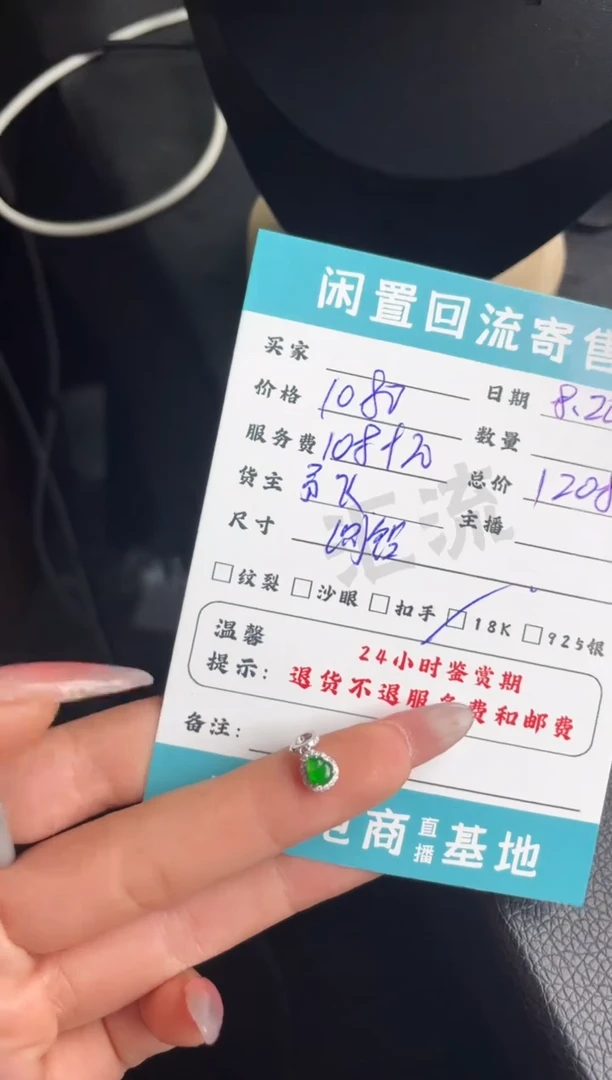 闲置回流寄售
买家
价格 1080 日期 8.20
服务费 108+20 数量
货主 总价 1208
尺寸 主播
汇流
纹裂 沙眼 扣手 18K 925银
温馨
提示:
24小时鉴赏期
退货不退服务费和邮费
备注:
电商直播基地